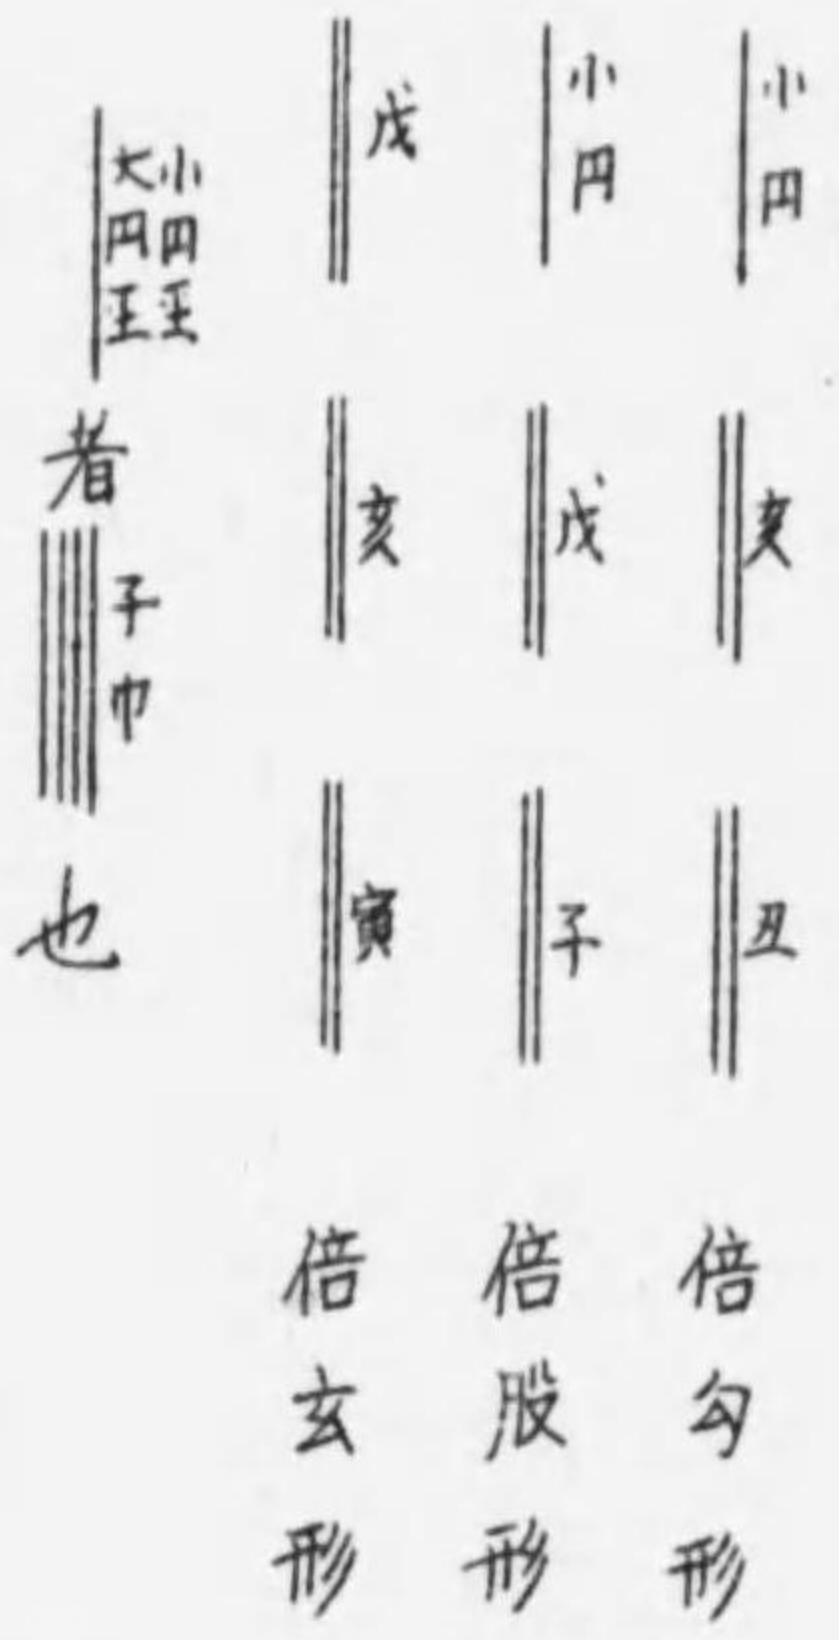 小円 亥 丑 倍勾形
小円 戊 子 倍股形
戊 亥 寅 倍玄形
小円巠
大円巠
者 子巾 也